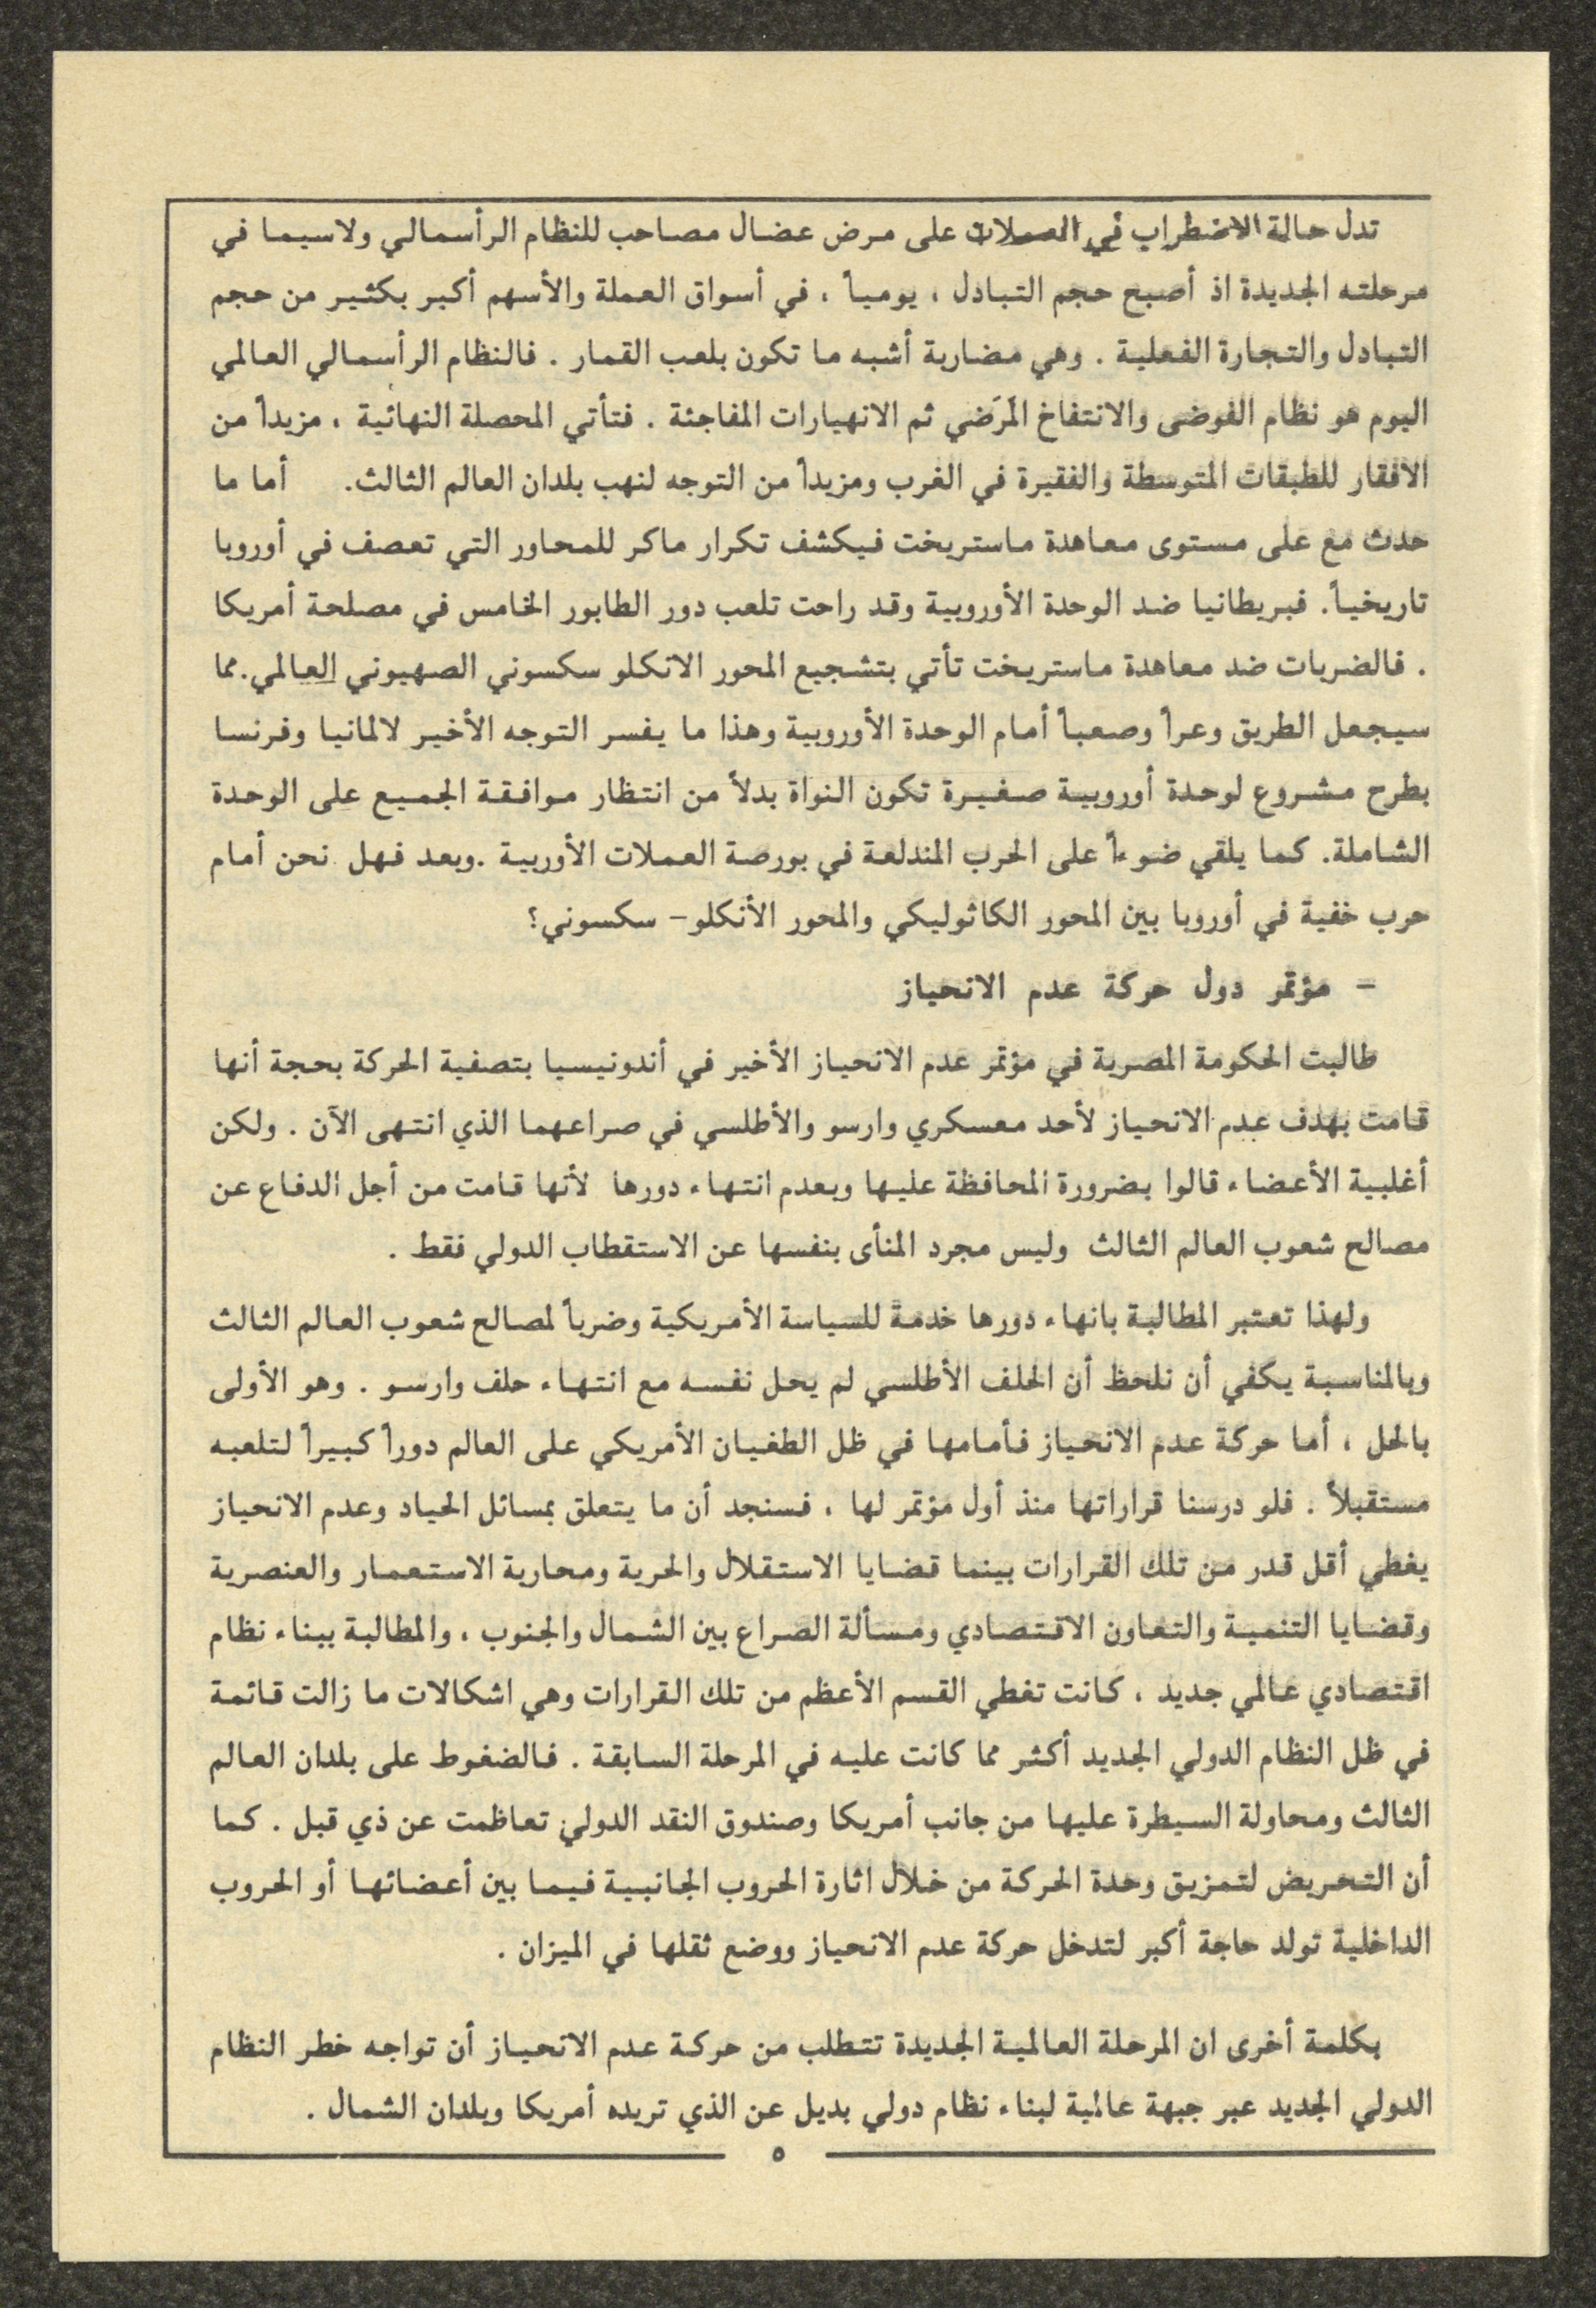 تدل حالة الاضطراب في العملات على مرض عضال مصاحب للنظام الرأسمالي ولاسيما في
مرحلته الجديدة اذ أصبح حجم التبادل ، يومياً ، في أسواق العملة والأسهم أكبر بكثير من حجم
التبادل والتجارة الفعلية . وهي مضاربة أشبه ما تكون بلعب القمار . فالنظام الرأسمالي العالمي
اليوم هو نظام الفوضى والانتفاخ المَرَضي ثم الانهيارات المفاجئة . فتأتي المحصلة النهائية ، مزيداً من
الافقار للطبقات المتوسطة والفقيرة في الغرب ومزيداً من التوجه لنهب بلدان العالم الثالث. أما ما
حدث مع على مستوى معاهدة ماستريخت فيكشف تكرار ماكر للمحاور التي تعصف في أوروبا
تاريخياً. فبريطانيا ضد الوحدة الأوروبية وقد راحت تلعب دور الطابور الخامس في مصلحة أمريكا
. فالضربات ضد معاهدة ماستريخت تأتي بتشجيع المحور الانكلو سكسوني الصهيوني العالمي.مما
سيجعل الطريق وعراً وصعباً أمام الوحدة الأوروبية وهذا ما يفسر التوجه الأخير لالمانيا وفرنسا
بطرح مشروع لوحدة أوروبية صغيرة تكون النواة بدلاً من انتظار موافقة الجميع على الوحدة
الشاملة. كما يلقي ضوءاً على الحرب المندلعة في بورصة العملات الأوربية .وبعد فهل نحن أمام
حرب خفية في أوروبا بين المحور الكاثوليكي والمحور الأنكلو- سكسوني؟
- مؤتمر دول حركة عدم الانحياز
طالبت الحكومة المصرية في مؤتمر عدم الانحياز الأخير في أندونيسيا بتصفية الحركة بحجة أنها
قامت بهدف عدم الانحياز لأحد معسكري وارسو والأطلسي في صراعهما الذي انتهى الآن . ولكن
أغلبية الأعضاء قالوا بضرورة المحافظة عليها وبعدم انتهاء دورها لأنها قامت من أجل الدفاع عن
مصالح شعوب العالم الثالث وليس مجرد المنأى بنفسها عن الاستقطاب الدولي فقط .
ولهذا تعتبر المطالبة بانهاء دورها خدمة للسياسة الأمريكية وضرباً لمصالح شعوب العالم الثالث
وبالمناسبة يكفي أن نلحظ أن الحلف الأطلسي لم يحل نفسه مع انتهاء حلف وارسو . وهو الأولى
بالحل ، أما حركة عدم الانحياز فأمامها في ظل الطغيان الأمريكي على العالم دوراً كبيراً لتلعبه
مستقبلاً . فلو درسنا قراراتها منذ أول مؤتمر لها ، فسنجد أن ما يتعلق بمسائل الحياد وعدم الانحياز
يغطي أقل قدر من تلك القرارات بينما قضايا الاستقلال والحرية ومحاربة الاستعمار والعنصرية
وقضايا التنمية والتعاون الاقتصادي ومسألة الصراع بين الشمال والجنوب ، والمطالبة ببناء نظام
اقتصادي عالمي جديد ، كانت تغطي القسم الأعظم من تلك القرارات وهي اشكالات ما زالت قائمة
في ظل النظام الدولي الجديد أكثر مما كانت عليه في المرحلة السابقة . فالضغوط على بلدان العالم
الثالث ومحاولة السيطرة عليها من جانب أمريكا وصندوق النقد الدولي تعاظمت عن ذي قبل . كما
أن التحريض لتمزيق وحدة الحركة من خلال اثارة الحروب الجانبية فيما بين أعضائها أو الحروب
الداخلية تولد حاجة أكبر لتدخل حركة عدم الانحياز ووضع ثقلها في الميزان .
بكلمة أخرى ان المرحلة العالمية الجديدة تتطلب من حركة عدم الانحياز أن تواجه خطر النظام
الدولي الجديد عبر جبهة عالمية لبناء نظام دولي بديل عن الذي تريده أمريكا وبلدان الشمال .
٥